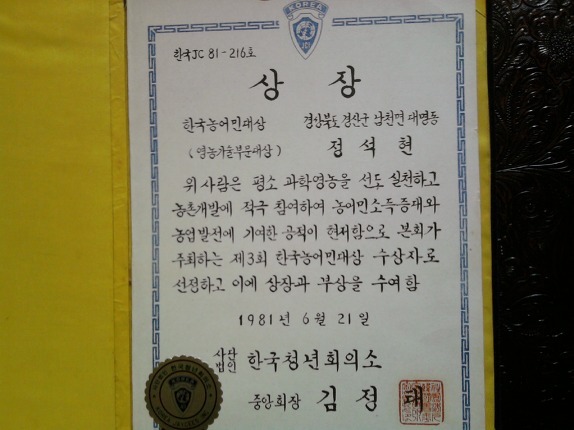 KOREA
JCI
한국JC 81-216호
상 장
한국농어민대상 경상북도 경산군 남천면 대명동
(영농기술부문대상) 정석현
위 사람은 평소 과학영농을 선도 실천하고
농촌개발에 적극 참여하여 농어민소득증대와
농업발전에 기여한 공적이 현저함으로 본회가
주최하는 제3회 한국농어민대상 수상자로
선정하고 이에 상장과 부상을 수여함
1981년 6월 21일
사단법인 한국청년회의소
중앙회장 김정태